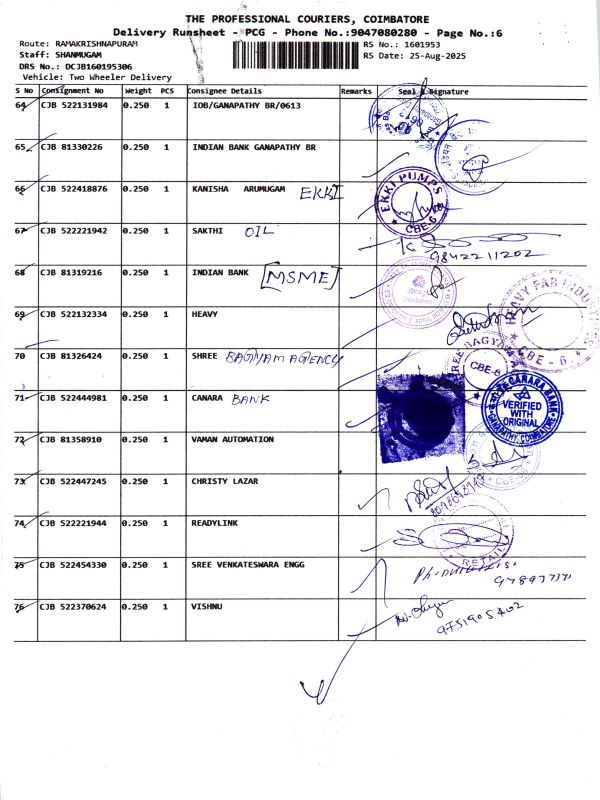 THE PROFESSIONAL COURIERS, COIMBATORE
Delivery Runsheet - PCG - Phone No.:9047080280 - Page No.:6
Route: RAMAKRISHNAPURAM
RS No.: 1601953
Staff: SHANMUGAM
RS Date: 25-Aug-2025
DRS No.: DCJB160195306
Vehicle: Two Wheeler Delivery
S No Consignment No Weight PCS Consignee Details Remarks Seal & Signature
64 CJB 522131984 0.250 1 IOB/GANAPATHY BR/0613
65 CJB 81330226 0.250 1 INDIAN BANK GANAPATHY BR
66 CJB 522418876 0.250 1 KANISHA ARUMUGAM EKKI
EKKI PUMPS
CBE-6
67 CJB 522221942 0.250 1 SAKTHI OIL
9842211202
68 CJB 81319216 0.250 1 INDIAN BANK [MSME]
69 CJB 522132334 0.250 1 HEAVY
HEAVY FAB INDUSTRIES
CBE - 6
70 CJB 81326424 0.250 1 SHREE BAGYAM AGENCY
CBE-6
71 CJB 522444981 0.250 1 CANARA BANK
CANARA BANK
VERIFIED
WITH
ORIGINAL
GANAPATHY, COIMBATORE
72 CJB 81358910 0.250 1 VAMAN AUTOMATION
73 CJB 522447245 0.250 1 CHRISTY LAZAR
74 CJB 522221944 0.250 1 READYLINK
RETAIL
75 CJB 522454330 0.250 1 SREE VENKATESWARA ENGG
76 CJB 522370624 0.250 1 VISHNU
9751905402